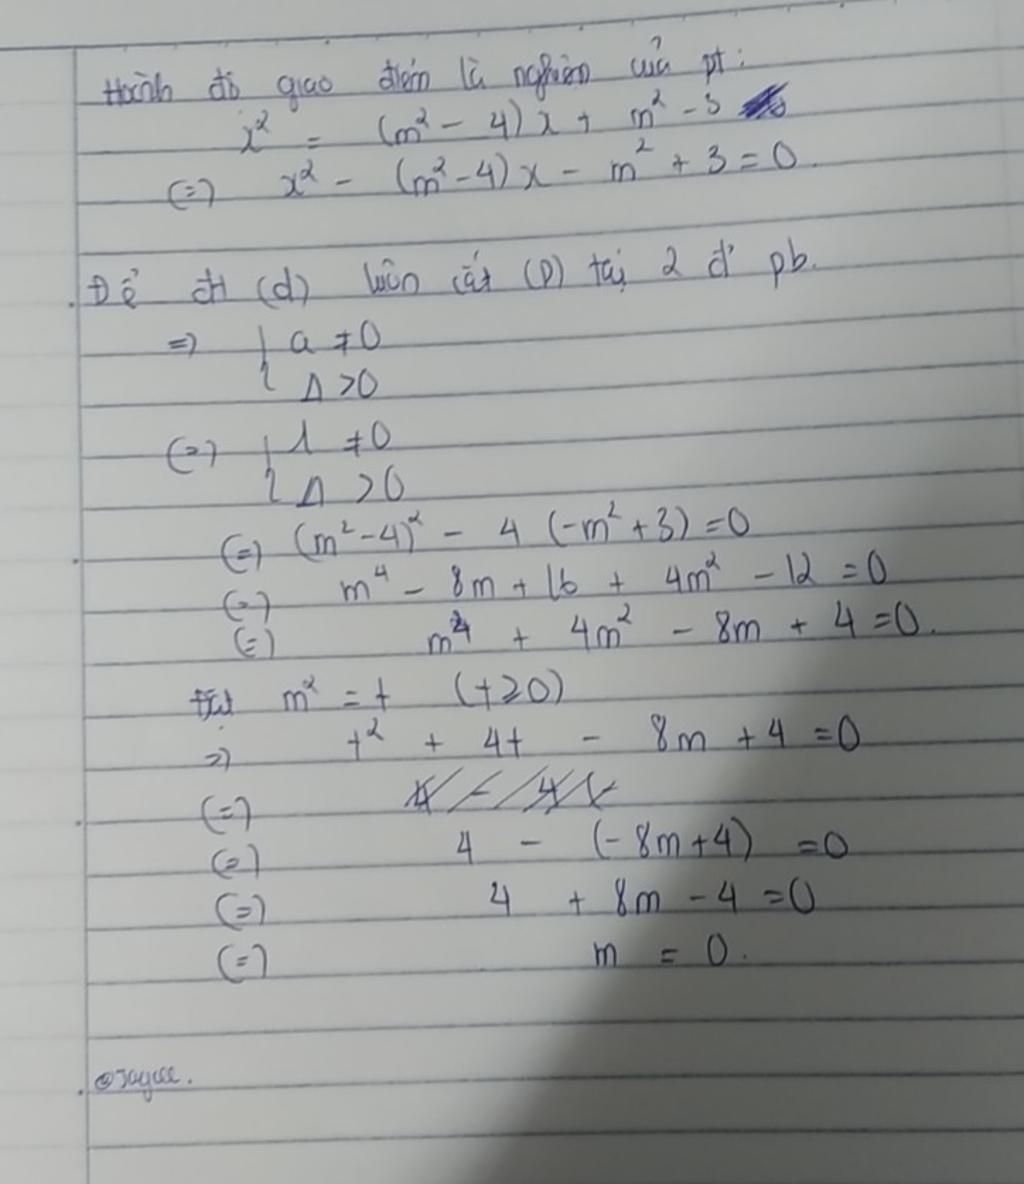 Hoành độ giao điểm là nghiệm của pt:
x² = (m² - 4)x + m² - 3
(=) x² - (m² - 4)x - m² + 3 = 0
Để đt (d) luôn cắt (P) tại 2 đ' pb.
=> { a ≠ 0
Δ > 0
(=) { 1 ≠ 0
Δ > 0
(=) (m² - 4)² - 4 (-m² + 3) = 0
(=) m⁴ - 8m + 16 + 4m² - 12 = 0
(=) m⁴ + 4m² - 8m + 4 = 0.
Đặt m² = t (t ≥ 0)
=> t² + 4t - 8m + 4 = 0
(=)
(=) 4 - (-8m + 4) = 0
(=) 4 + 8m - 4 = 0
(=) m = 0.